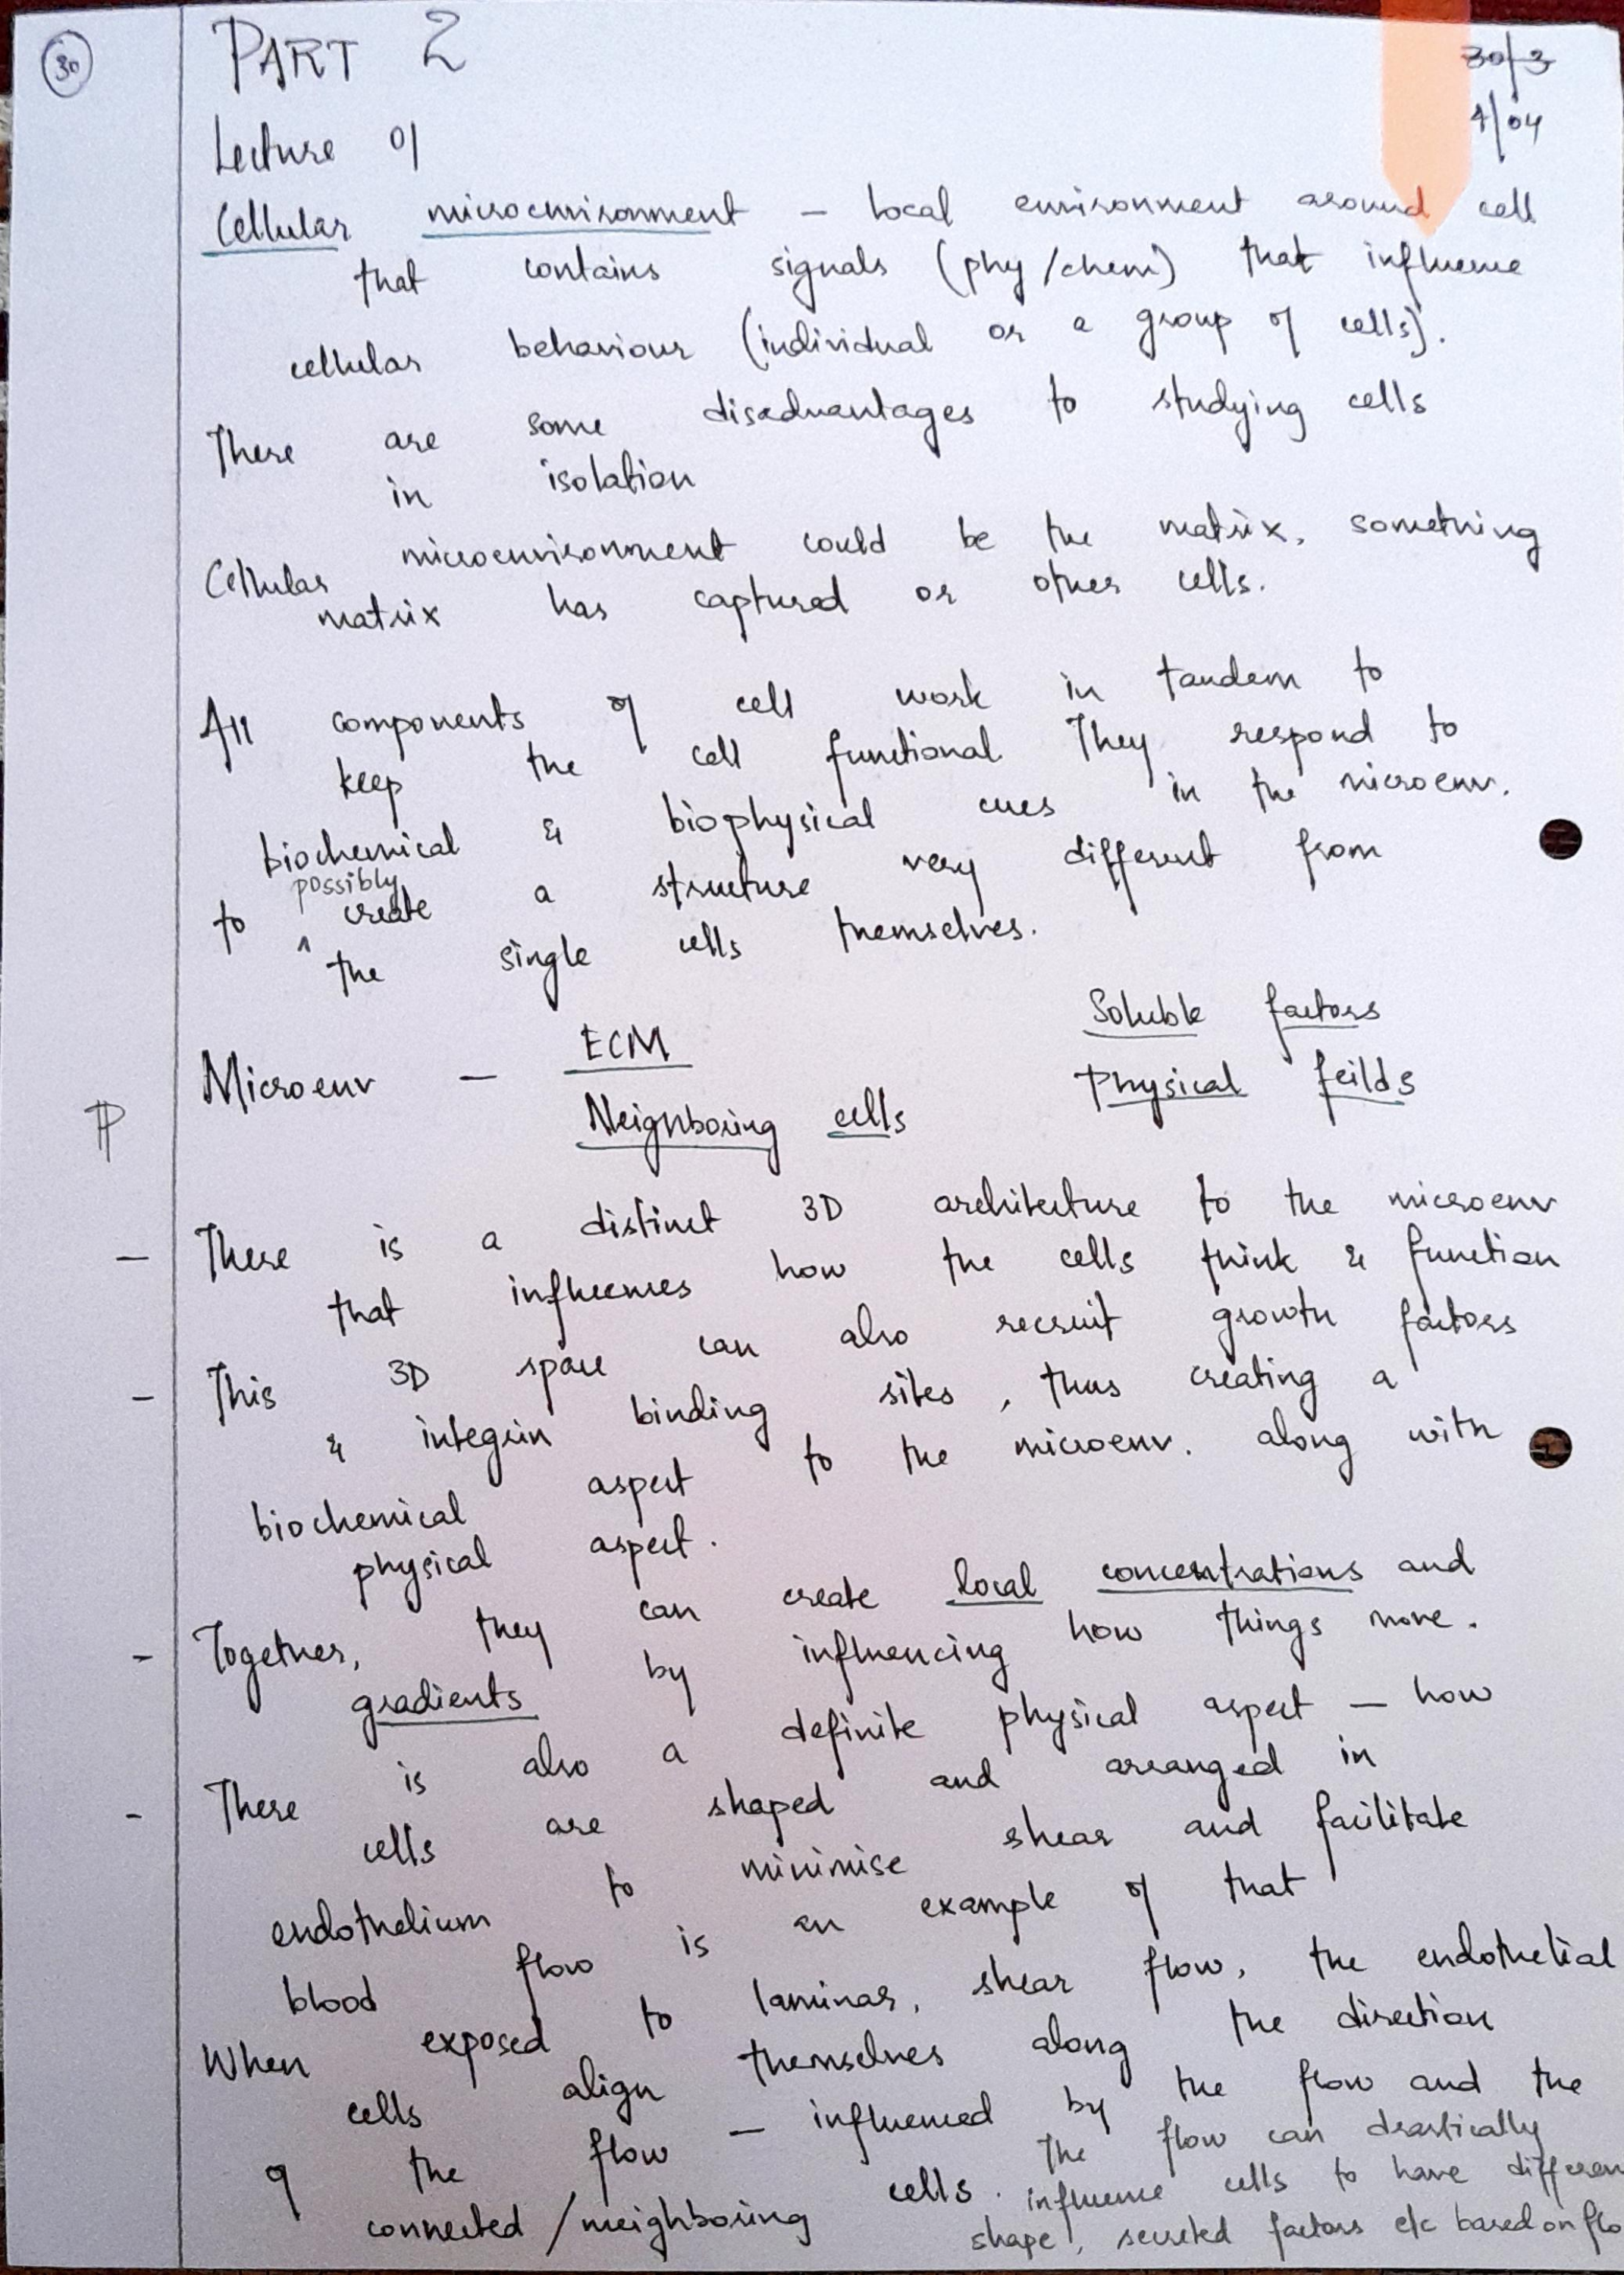 30
PART 2
30/3
Lecture 01
4/04
Cellular microenvironment – local environment around cell
that contains signals (phy/chem) that influence
cellular behaviour (individual or a group of cells).
There are some disadvantages to studying cells
in isolation
Cellular microenvironment could be the matrix, something
matrix has captured or other cells.
All components of cell work in tandem to
keep the cell functional. They respond to
biochemical & biophysical cues in the microenv.
to possibly create a structure very different from
the single cells themselves.
Microenv – ECM Soluble factors
Neighboring cells Physical feilds
– There is a distinct 3D architecture to the microenv
that influences how the cells think & function
– This 3D space can also recruit growth factors
& integrin binding sites, thus creating a
biochemical aspect to the microenv. along with
physical aspect.
– Together, they can create local concentrations and
gradients by influencing how things move.
– There is also a definite physical aspect – how
cells are shaped and arranged in
endothelium to minimise shear and facilitate
blood flow is an example of that
When exposed to laminar, shear flow, the endothelial
cells align themselves along the direction
of the flow – influenced by the flow and the
connected/neighboring cells. The flow can drastically
influence cells to have differen
shape, secreted factors etc based on flo